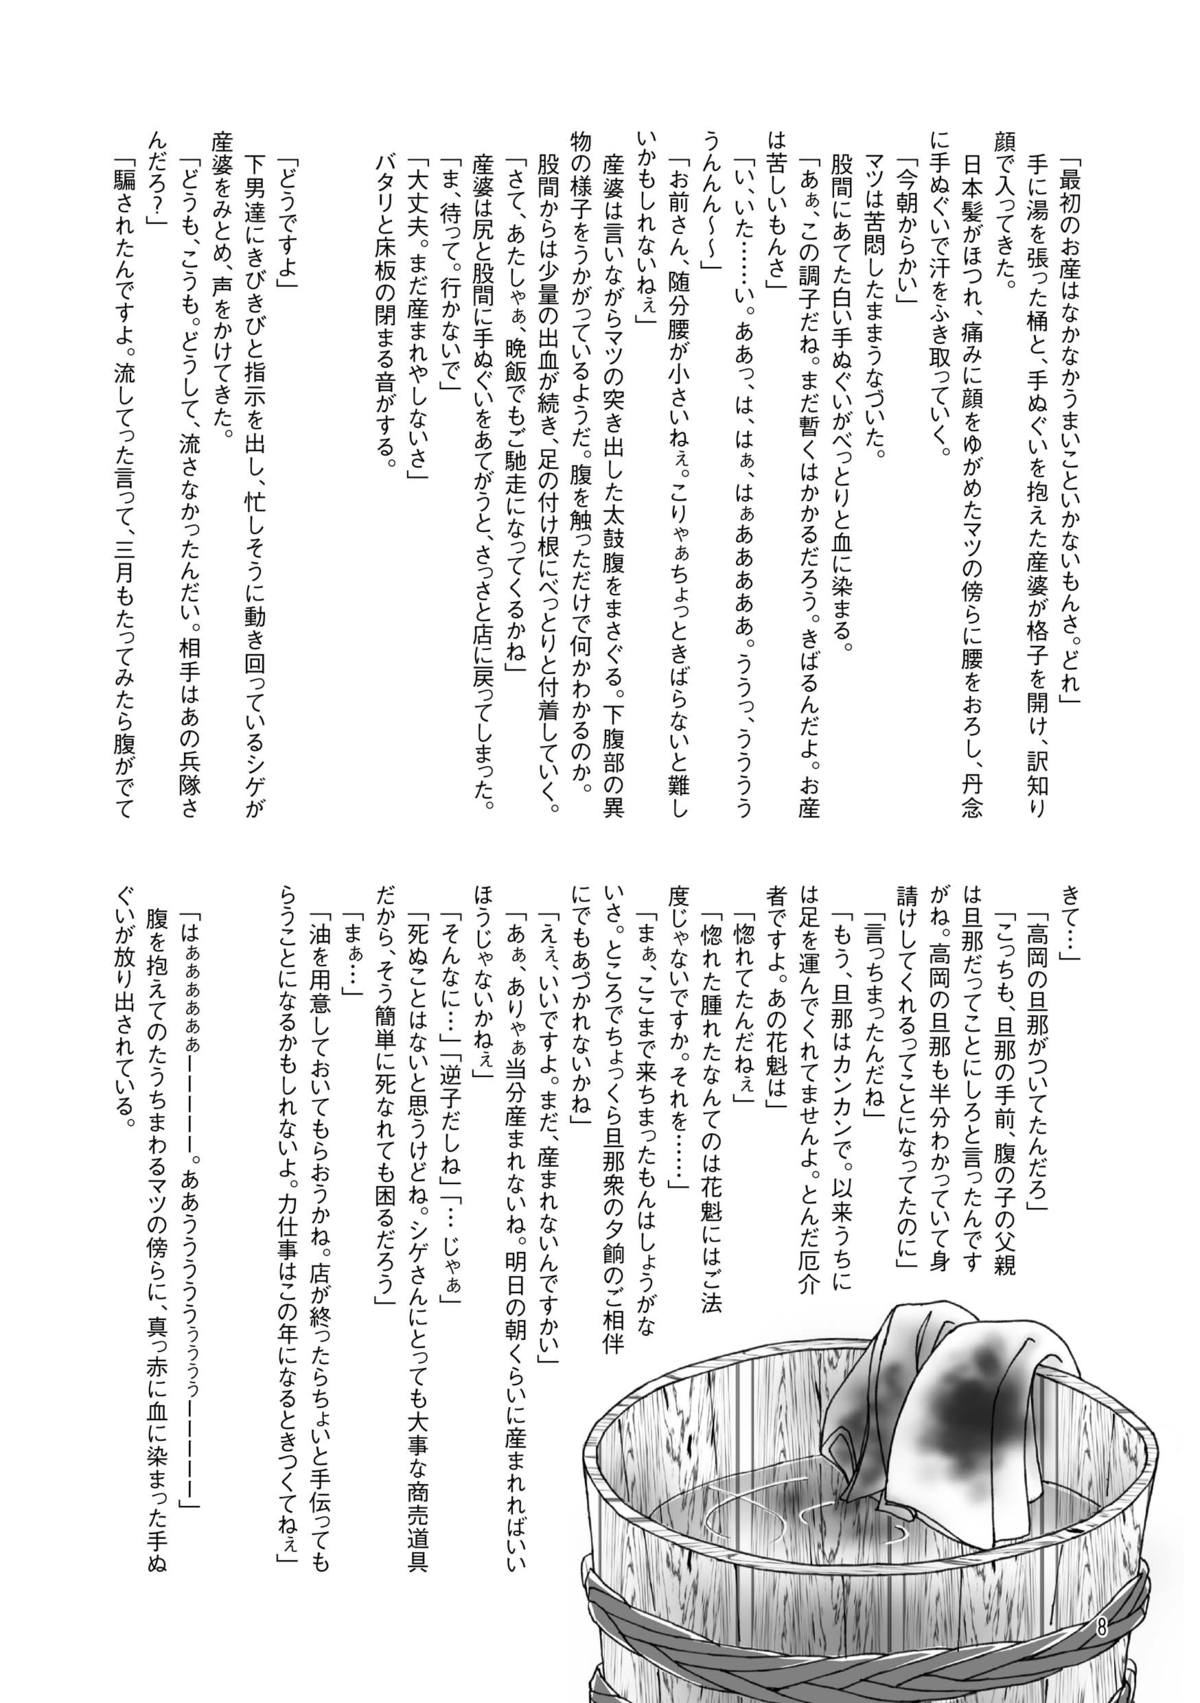 「最初のお産はなかなかうまいこといかないもんさ。どれ」
手に湯を張った桶と、手ぬぐいを抱えた産婆が格子を開け、訳知り
顔で入ってきた。
日本髪がほつれ、痛みに顔をゆがめたマツの傍らに腰をおろし、丹念
に手ぬぐいで汗をふき取っていく。
「今朝からかい」
マツは苦悶したままうなづいた。
股間にあてた白い手ぬぐいがべっとりと血に染まる。
「あぁ、この調子だね。まだ暫くはかかるだろう。きばるんだよ。お産
は苦しいもんさ」
「い、いた……い。ああっ、は、はぁ、はぁああああぁ。ううっ、うううう
うんんん～～」
「お前さん、随分腰が小さいねぇ。こりゃぁちょっときばらないと難し
いかもしれないねぇ」
産婆は言いながらマツの突き出した太鼓腹をまさぐる。下腹部の異
物の様子をうかがっているようだ。腹を触っただけで何かわかるのか。
股間からは少量の出血が続き、足の付け根にべっとりと付着していく。
「さて、あたしゃぁ、晩飯でもご馳走になってくるかね」
産婆は尻と股間に手ぬぐいをあてがうと、さっさと店に戻ってしまった。
「ま、待って。行かないで」
「大丈夫。まだ産まれやしないさ」
バタリと床板の閉まる音がする。
「どうですよ」
下男達にきびきびと指示を出し、忙しそうに動き回っているシゲが
産婆をみとめ、声をかけてきた。
「どうも、こうも。どうして、流さなかったんだい。相手はあの兵隊さ
んだろ？」
「騙されたんですよ。流してった言って、三月もたってみたら腹がでて
きて…」
「高岡の旦那がついてたんだろ」
「こっちも、旦那の手前、腹の子の父親
は旦那だってことにしろと言ったんです
がね。高岡の旦那も半分わかっていて身
請けしてくれるってことになってたのに」
「言っちまったんだね」
「もう、旦那はカンカンで。以来うちに
は足を運んでくれてませんよ。とんだ厄介
者ですよ。あの花魁は」
「惚れてたんだねぇ」
「惚れた腫れたなんてのは花魁にはご法
度じゃないですか。それを……」
「まぁ、ここまで来ちまったもんはしょうがな
いさ。ところでちょっくら旦那衆の夕餉のご相伴
にでもあづかれないかね」
「えぇ、いいですよ。まだ、産まれないんですかい」
「あぁ、ありゃぁ当分産まれないね。明日の朝くらいに産まれればいい
ほうじゃないかねぇ」
「そんなに…」「逆子だしね」「…じゃぁ」
「死ぬことはないと思うけどね。シゲさんにとっても大事な商売道具
だから、そう簡単に死なれても困るだろう」
「まぁ…」
「油を用意しておいてもらおうかね。店が終ったらちょいと手伝っても
らうことになるかもしれないよ。力仕事はこの年になるときつくてねぇ」
「はぁぁぁぁぁぁーーーーー。ああううううううぅぅぅぅーーーーー」
腹を抱えてのたうちまわるマツの傍らに、真っ赤に血に染まった手ぬ
ぐいが放り出されている。
8